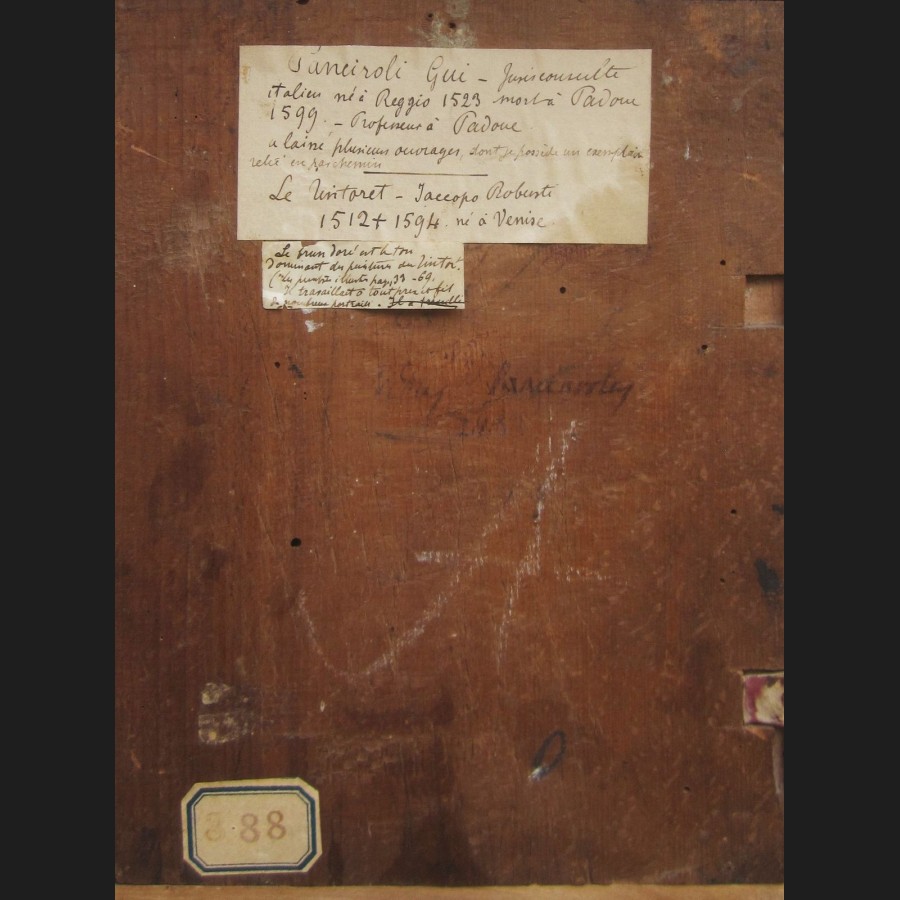 Panciroli Gui – Jurisconsulte
italien né à Reggio 1523 mort à Padoue
1599. – Professeur à Padoue
a laissé plusieurs ouvrages, dont je possède un exemplaire
relié en parchemin
Le Tintoret – Jaccopo Robusti
1512 + 1594. né à Venise
Le brun doré est le ton
dominant des peintures du Tintoret.
pag. 33 - 69.
Il travaillait à tout prix et fit
de nombreux portraits. Il a travaillé
Guy Pancirolley
88